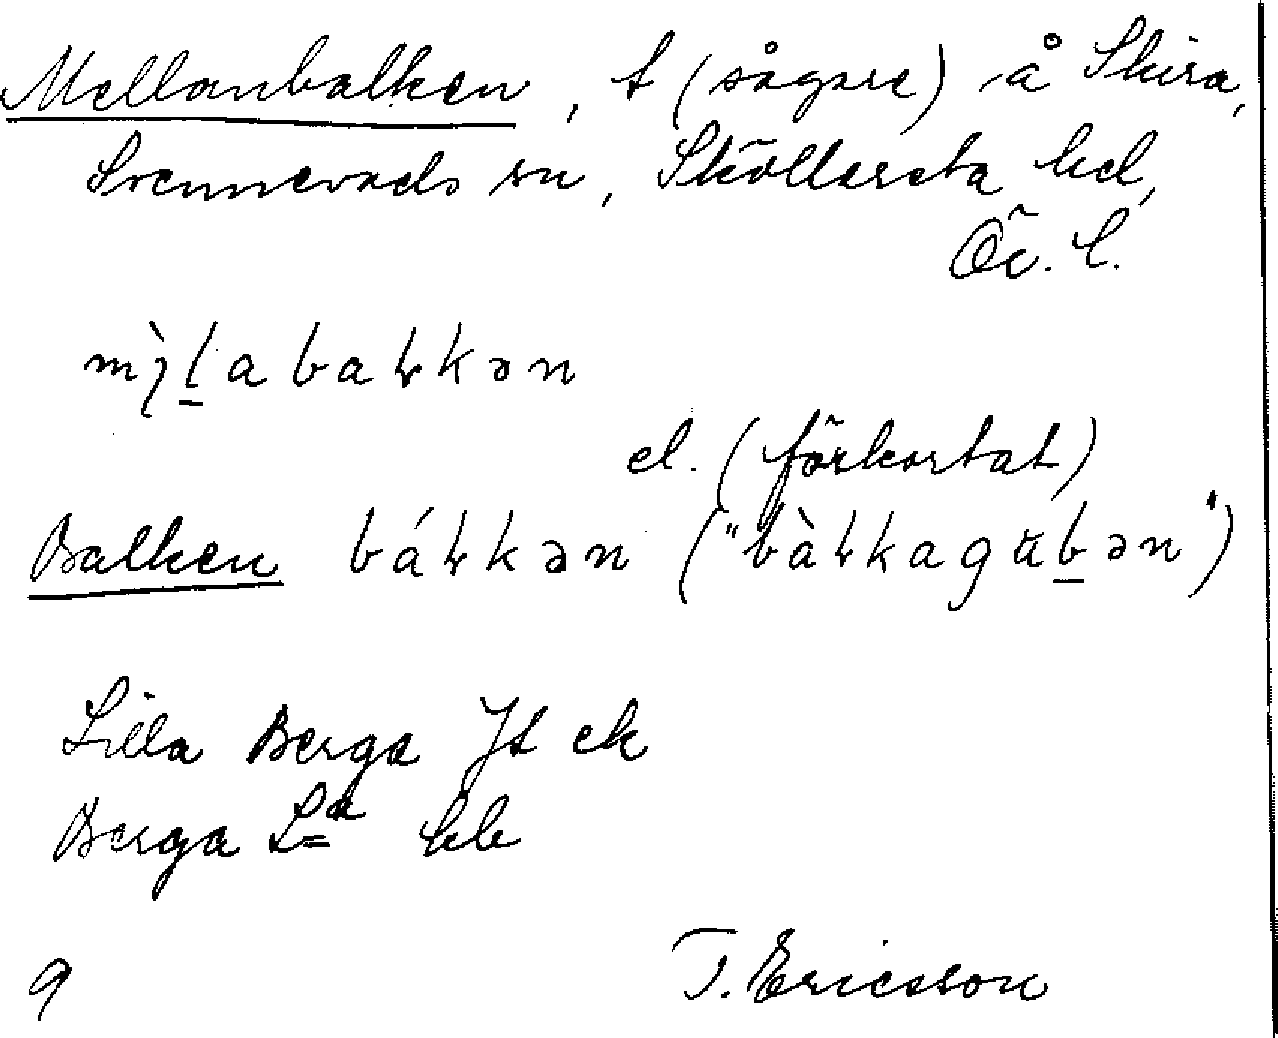 Mellanbalken, t (sågare) å Skira,
Svennevads sn, Sköllersta hd,
Ör. l.
balkən
el. (förkortat)
Balken bálkən ("bàlkagubən")
Lilla Berga Jt ek
Berga La hb
9 T. Ericsson